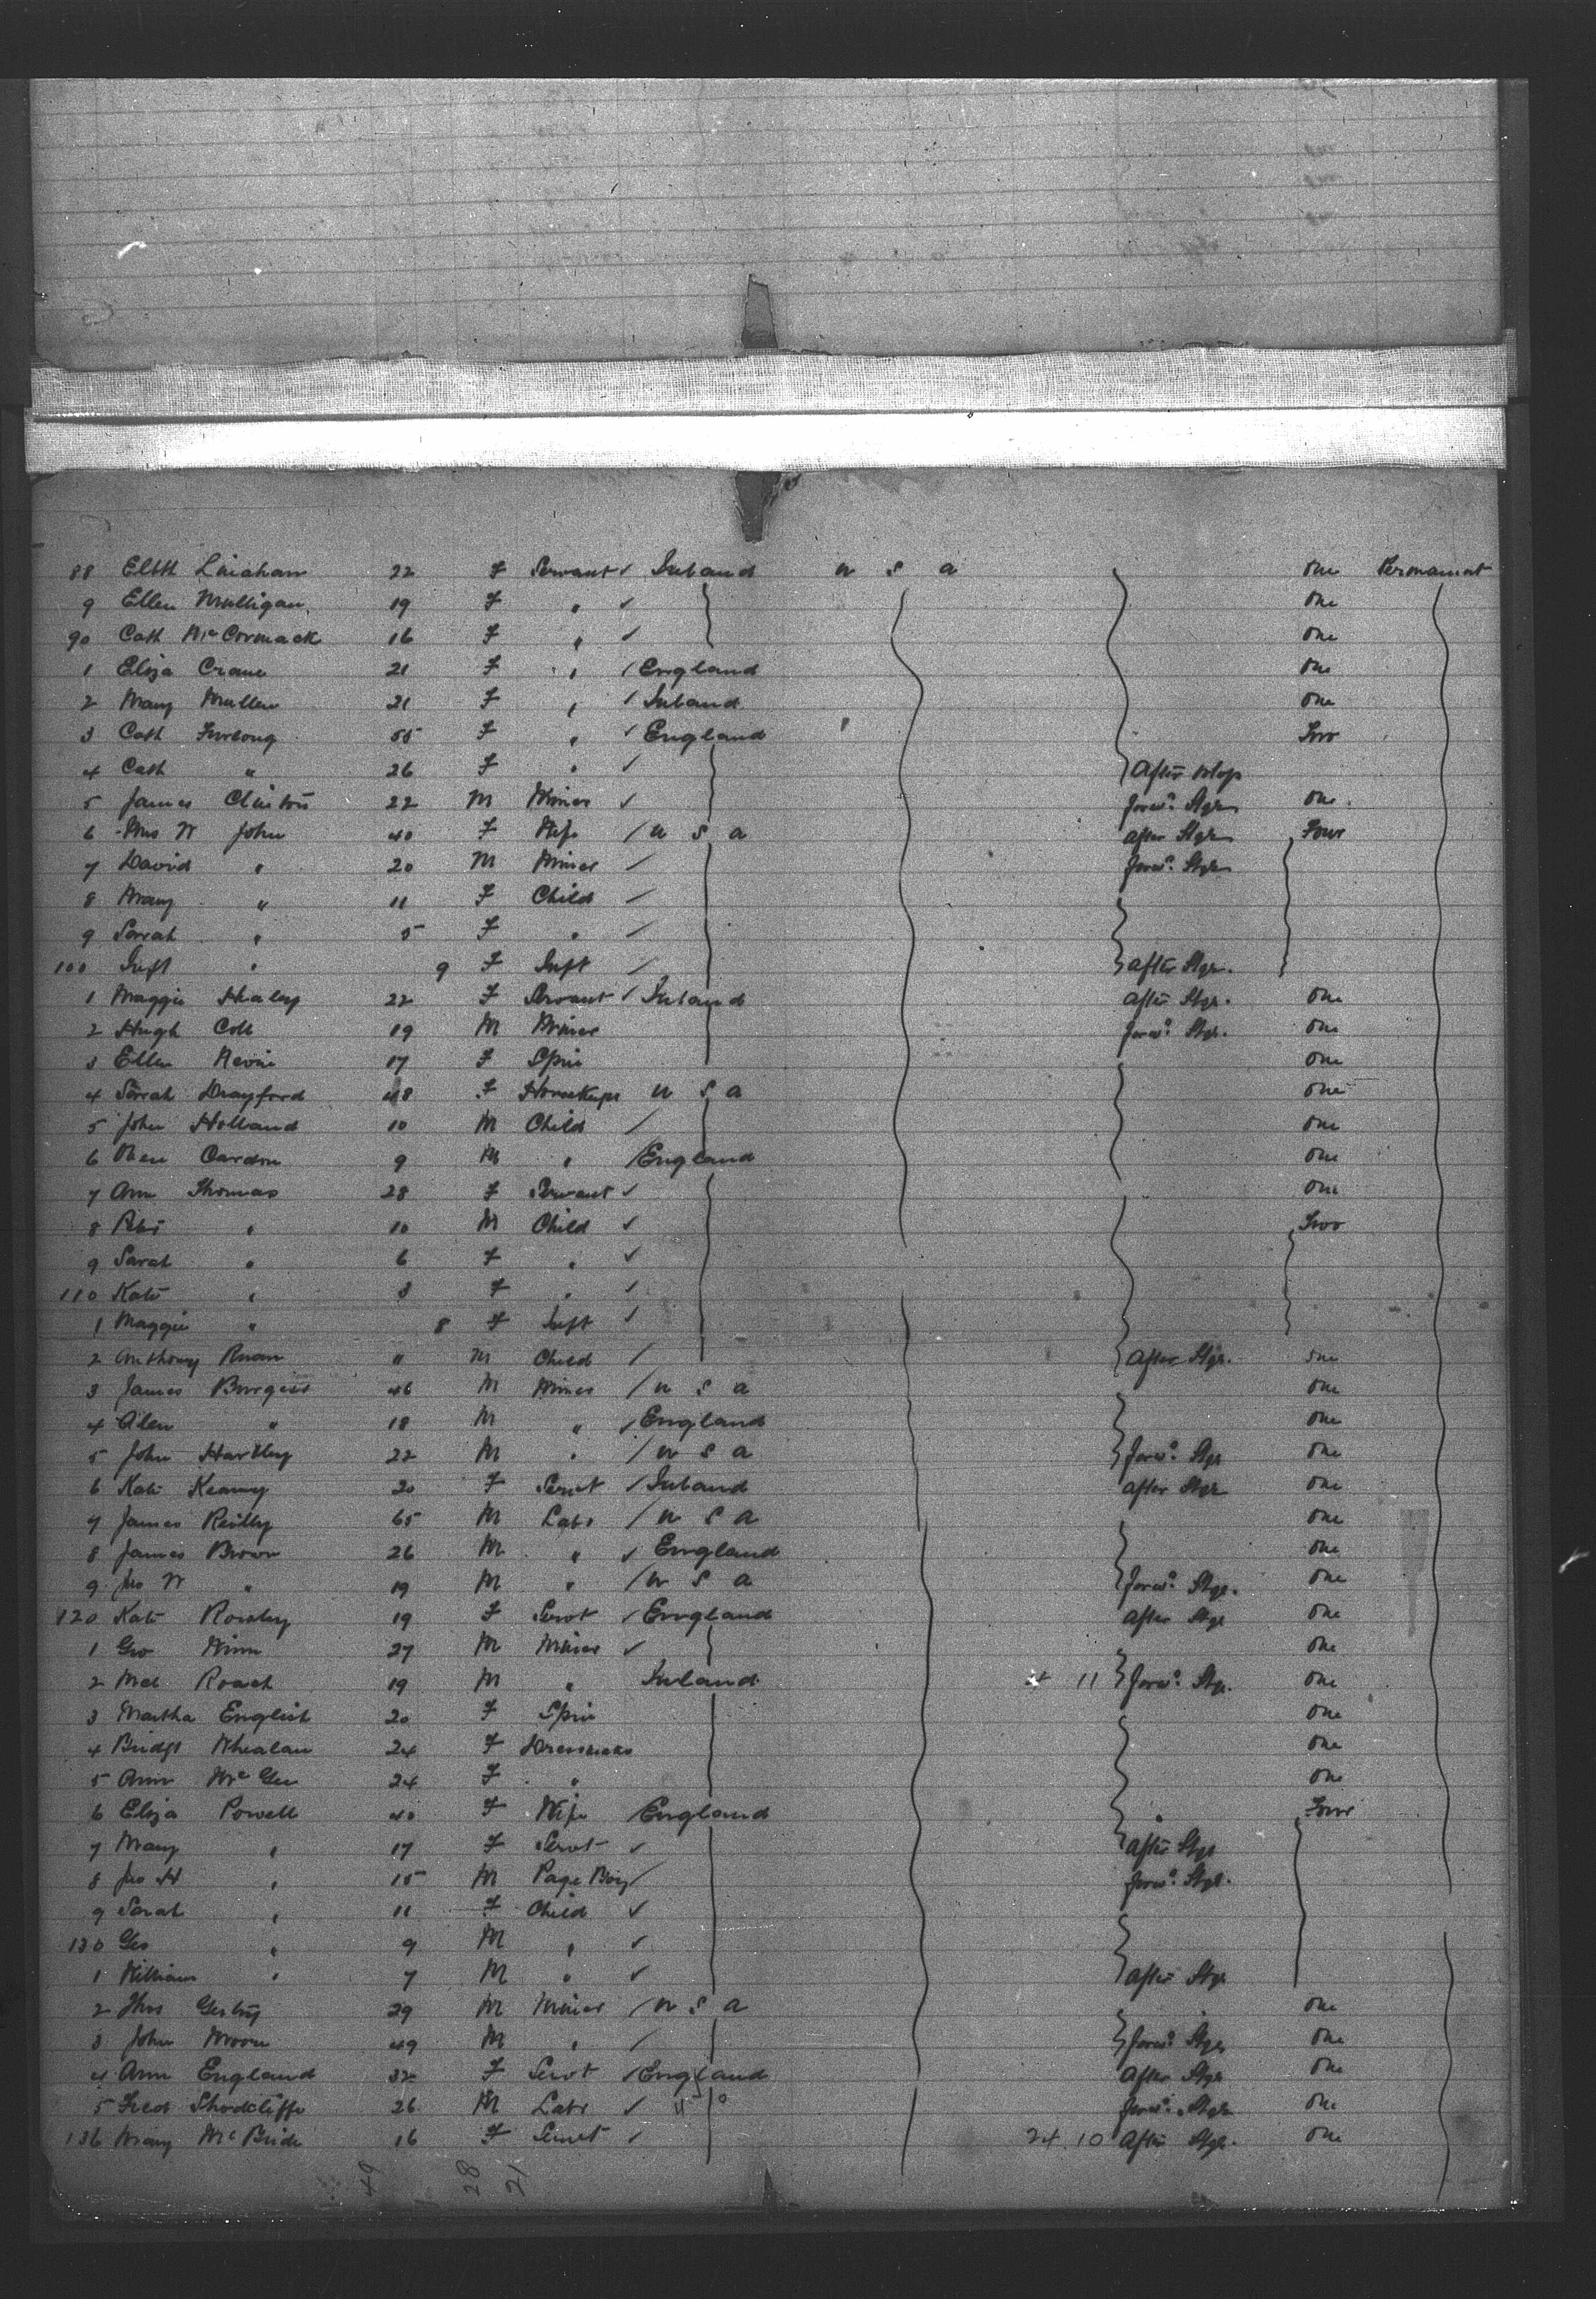 88 Elbth Linahan 22 F Servant ✓ Ireland U S A One Permanent
9 Ellen Mulligan 19 F " ✓ One
90 Cath McCormack 16 F " ✓ One
1 Eliza Crane 21 F " / England One
2 Mary Mullen 21 F " / Ireland One
3 Cath Furlong 55 F " ✓ England Two
4 Cath " 26 F " ✓ After
5 James Clinton 22 M Miner ✓ Forwd. Stge One
6 Mrs W John 40 F Wife / U S A After Stge Four
7 David " 20 M Miner / Forwd. Stge
8 Mary " 11 F Child /
9 Sarah " 5 F " /
100 Inft " 9 F Inft / After Stge.
1 Maggie Healey 22 F Servant ✓ Ireland After Stge. One
2 Hugh Coll 19 M Miner Forwd. Stge. One
3 Ellen Nevin 17 F Spin One
4 Sarah Drayford 48 F Housekepr U S A One
5 John Holland 10 M Child / One
6 Cardon 9 M " / England One
7 Ann Thomas 28 F Servant ✓ One
8 Peter " 10 M Child ✓ Two
9 Sarah " 6 F " ✓
110 Kate " 3 F " ✓
1 Maggie " 8 F Inft ✓
2 Anthony Ruan " M Child / After Stge. One
3 James Burgess 46 M Miner / U S A One
4 Alen " 18 M " / England One
5 John Hartley 22 M " / U S A Forwd. Stge One
6 Kate Kearny 20 F Servt / Ireland After Stge One
7 James Reilly 65 M Labr / U S A One
8 James Brown 26 M " ✓ England One
9 Jno W " 19 M " / U S A Forwd. Stge. One
120 Kate Rowley 19 F Servt / England After Stge One
1 Geo 27 M Miner ✓ One
2 Mcl Roach 19 M " Ireland 11 Forwd. Stge. One
3 Martha English 20 F Spin One
4 Bridgt Whealan 24 F Dressmakr One
5 Ann McGee 24 F " One
6 Eliza Powell 40 F Wife England Four
7 Mary " 17 F Servt ✓ After Stge
8 Jno H " 15 M Page Boy / Forwd. Stge.
9 Sarah " 11 F Child ✓
130 Geo " 9 M " ✓
1 William " 7 M " ✓ After Stge
2 Thos 29 M Miner / U S A One
3 John Moore 49 M " / Forwd. Stge One
4 Ann England 32 F Servt / England After Stge One
5 Fredk Shodcliffe 26 M Labr ✓ " Forwd. Stge One
136 Mary McBride 16 F Servt / 24 10 After Stge. One
49 28 21